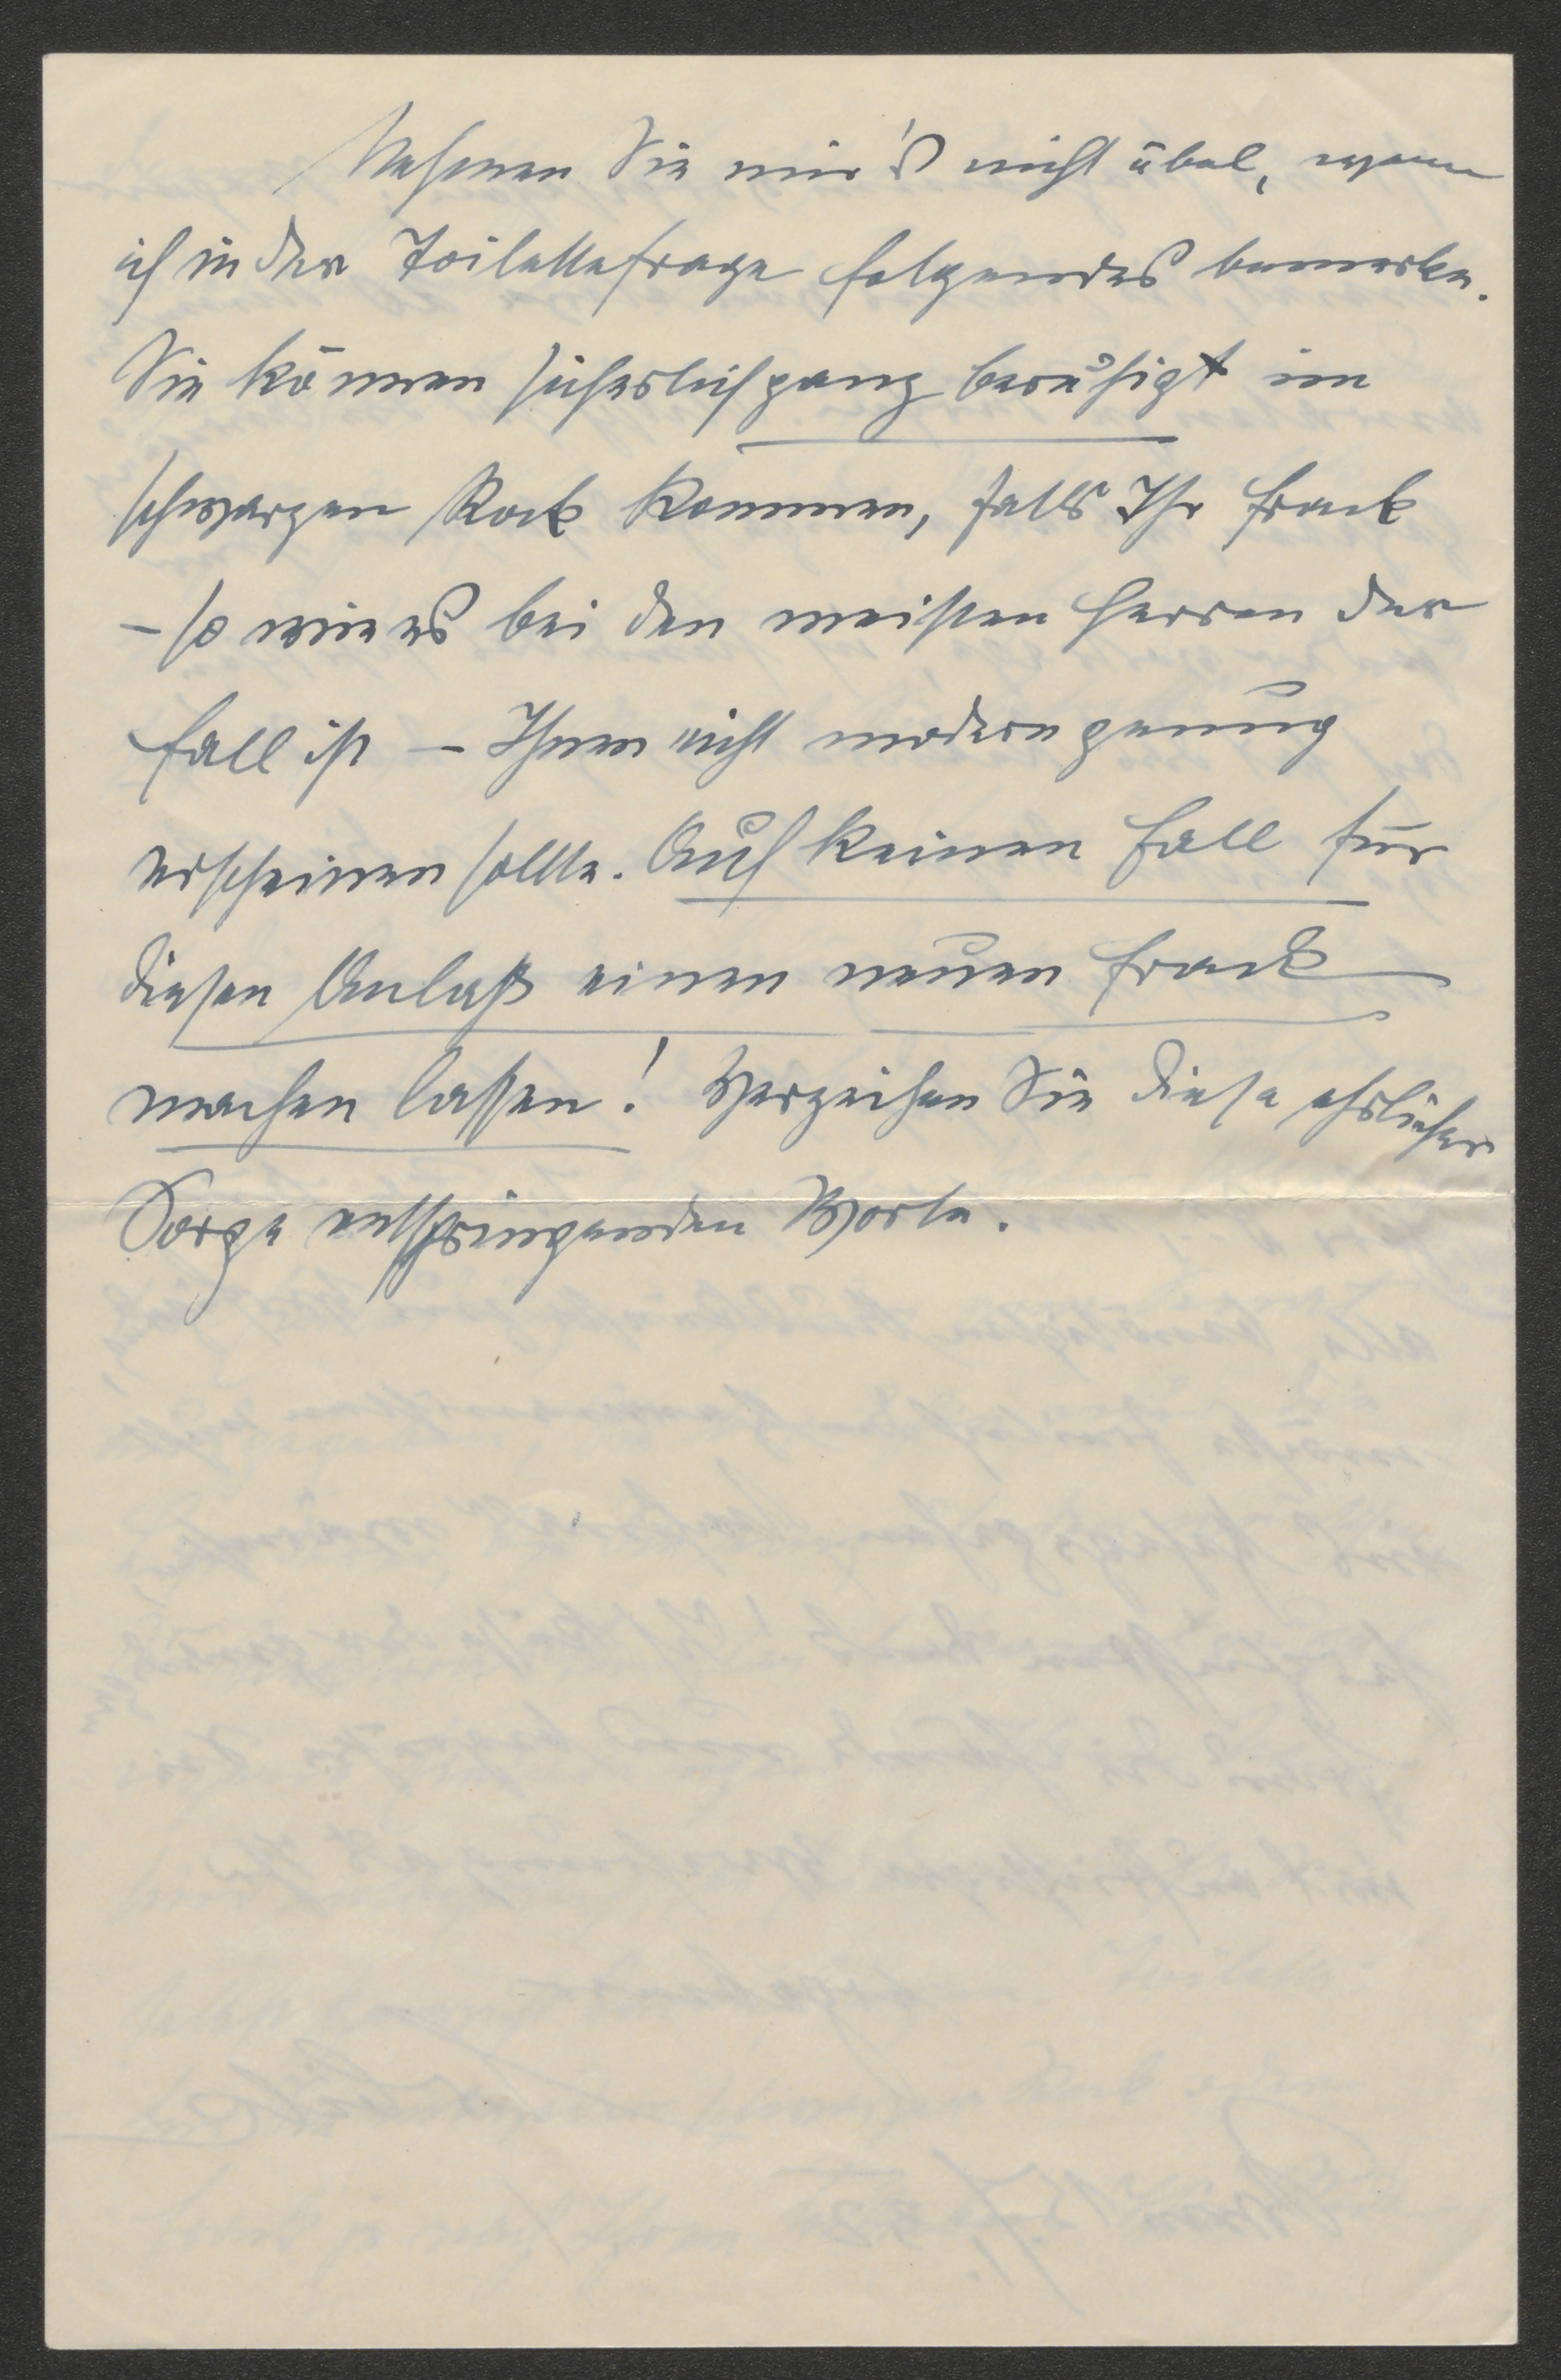 Nehmen Sie mir's nicht übel, wenn
ich in der Toilettefrage folgendes bemerke.
Sie können sicherlich ganz beruhigt im
schwarzen Rock kommen, falls Ihr Frack
– so wie es bei den meisten Herren der
Fall ist – Ihnen nicht modern genug
erscheinen sollte. Auf keinen Fall für
diesen Anlaß einen neuen Frack
machen lassen! Verzeihen Sie diese ehrlicher
Sorge entspringenden Worte.